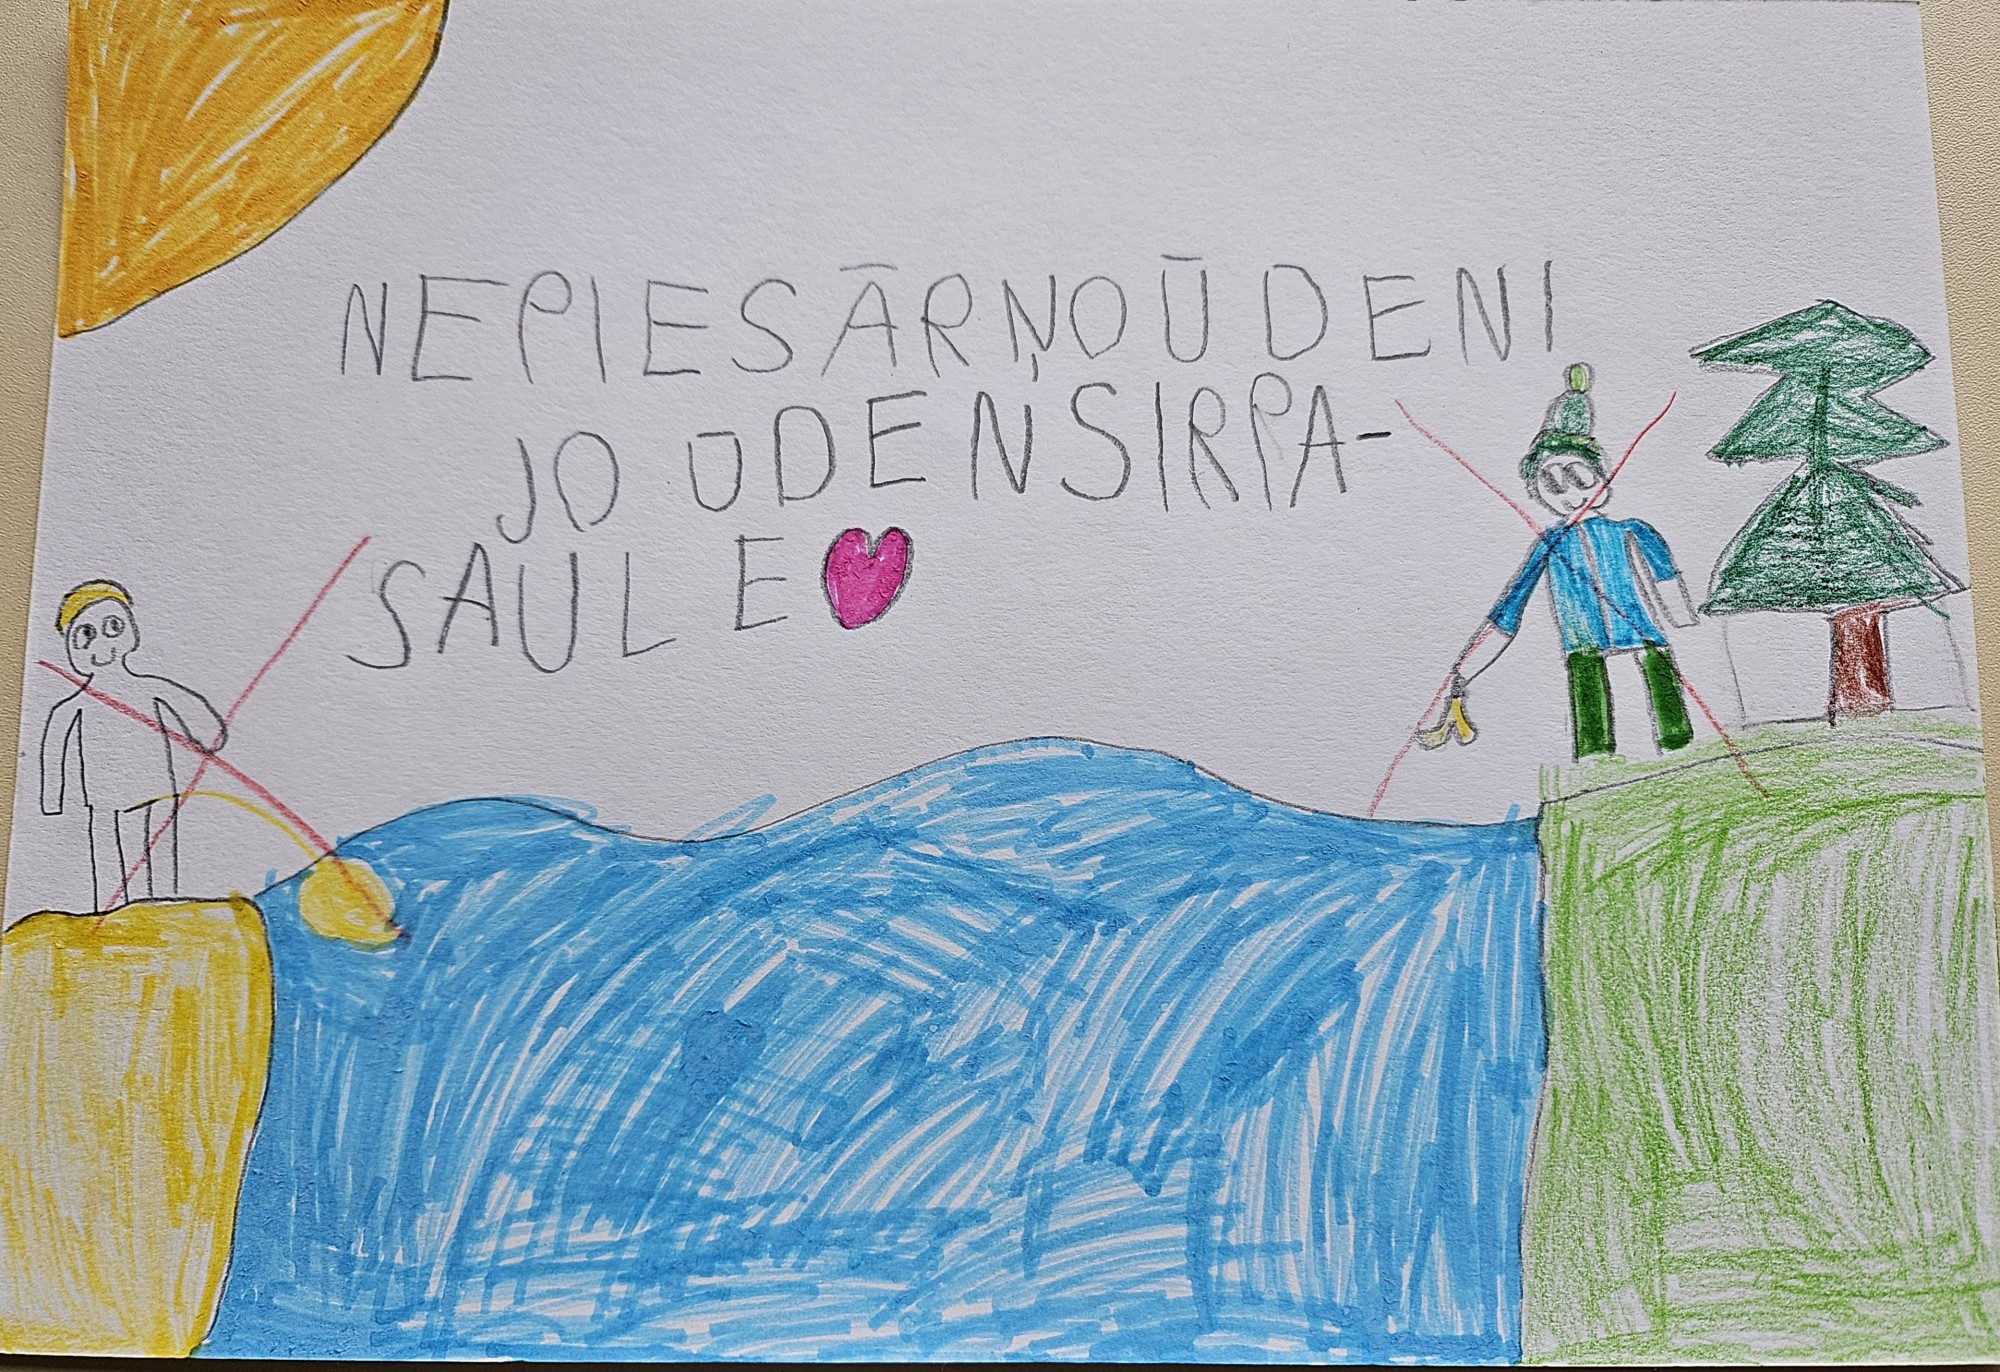 NEPIESĀRŅO ŪDENI
JO ŪDENS IR PA-
SAULE